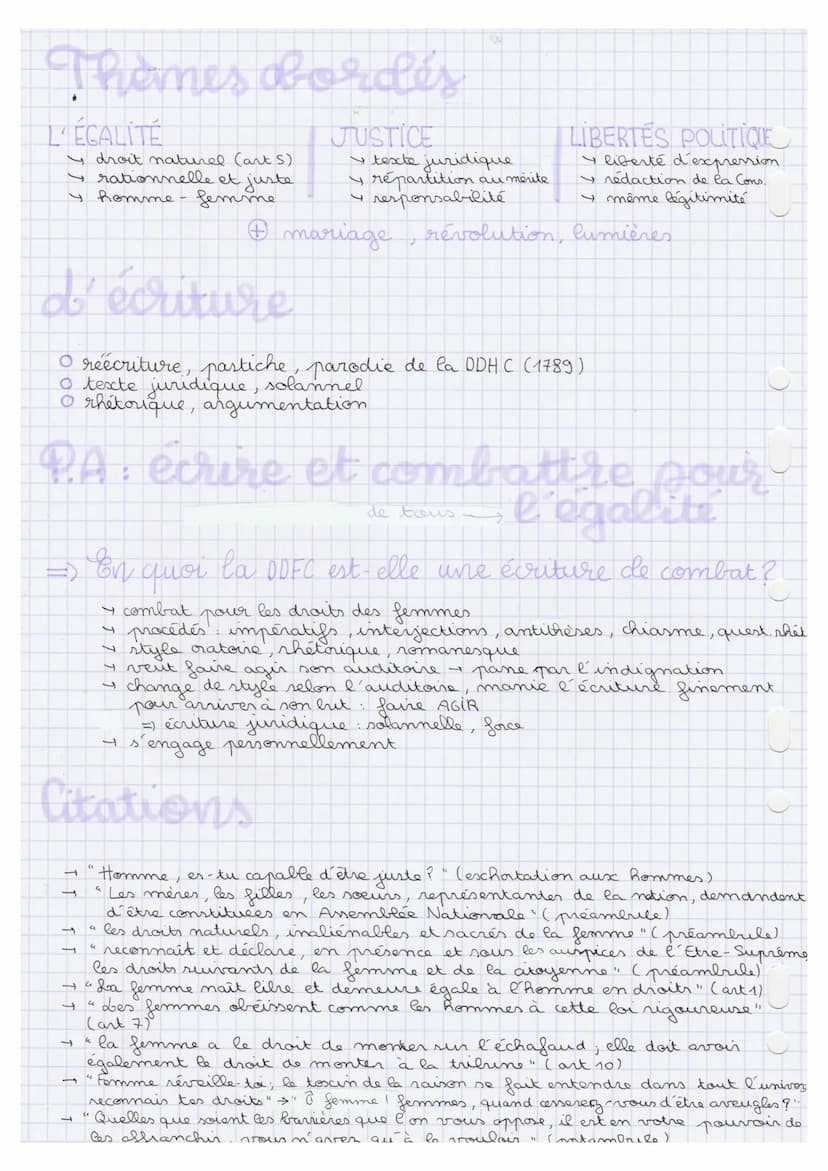 Thèmes abordés
L'ÉGALITÉ
↳ droit naturel (art 5)
↳ rationnelle et juste
↳ homme - femme
JUSTICE
↳ texte juridique
↳ répartition au mérite
↳ responsabilité
LIBERTÉS POLITIQUE
↳ liberté d'expression
↳ rédaction de la Cons.
↳ même légitimité
⊕ mariage, révolution, lumières
d'écriture
○ réécriture, pastiche, parodie de la DDHC (1789)
○ texte juridique, solannel
○ rhétorique, argumentation
P.A : écrire et combattre pour
de tous → l'égalité
⇒ En quoi la DDFC est-elle une écriture de combat?
↳ combat pour les droits des femmes
↳ procédés : impératifs, interjections, antithèses, chiasme, quest. rhét
↳ style oratoire, rhétorique, romanesque
↳ veut faire agir son auditoire → passe par l'indignation
↳ change de style selon l'auditoire, manie l'écriture finement
pour arriver à son but : faire AGIR
⇒ écriture juridique : solannelle, force
→ s'engage personnellement
Citations
→ "Homme, es-tu capable d'être juste?" (exhortation aux hommes)
→ "Les mères, les filles, les soeurs, représentantes de la nation, demandent
d'être constituées en Assemblée Nationale" (préambule)
→ "les droits naturels, inaliénables et sacrés de la femme" (préambule)
→ "reconnait et déclare, en présence et sous les auspices de l'Etre-Suprême
les droits suivants de la femme et de la citoyenne" (préambule)
→ "La femme naît libre et demeure égale à l'homme en droits" (art 1)
→ "Les femmes obéissent comme les hommes à cette loi rigoureuse"
(art 7)
→ "la femme a le droit de monter sur l'échafaud ; elle doit avoir
également le droit de monter à la tribune" (art 10)
→ "Femme réveille-toi ; le tocsin de la raison se fait entendre dans tout l'univers
reconnais tes droits" → "Ô femme! femmes, quand cesserez-vous d'être aveugles?"
→ "Quelles que soient les barrières que l'on vous oppose, il est en votre pouvoir de
les affranchir, vous n'avez qu'à le vouloir" (postambule)